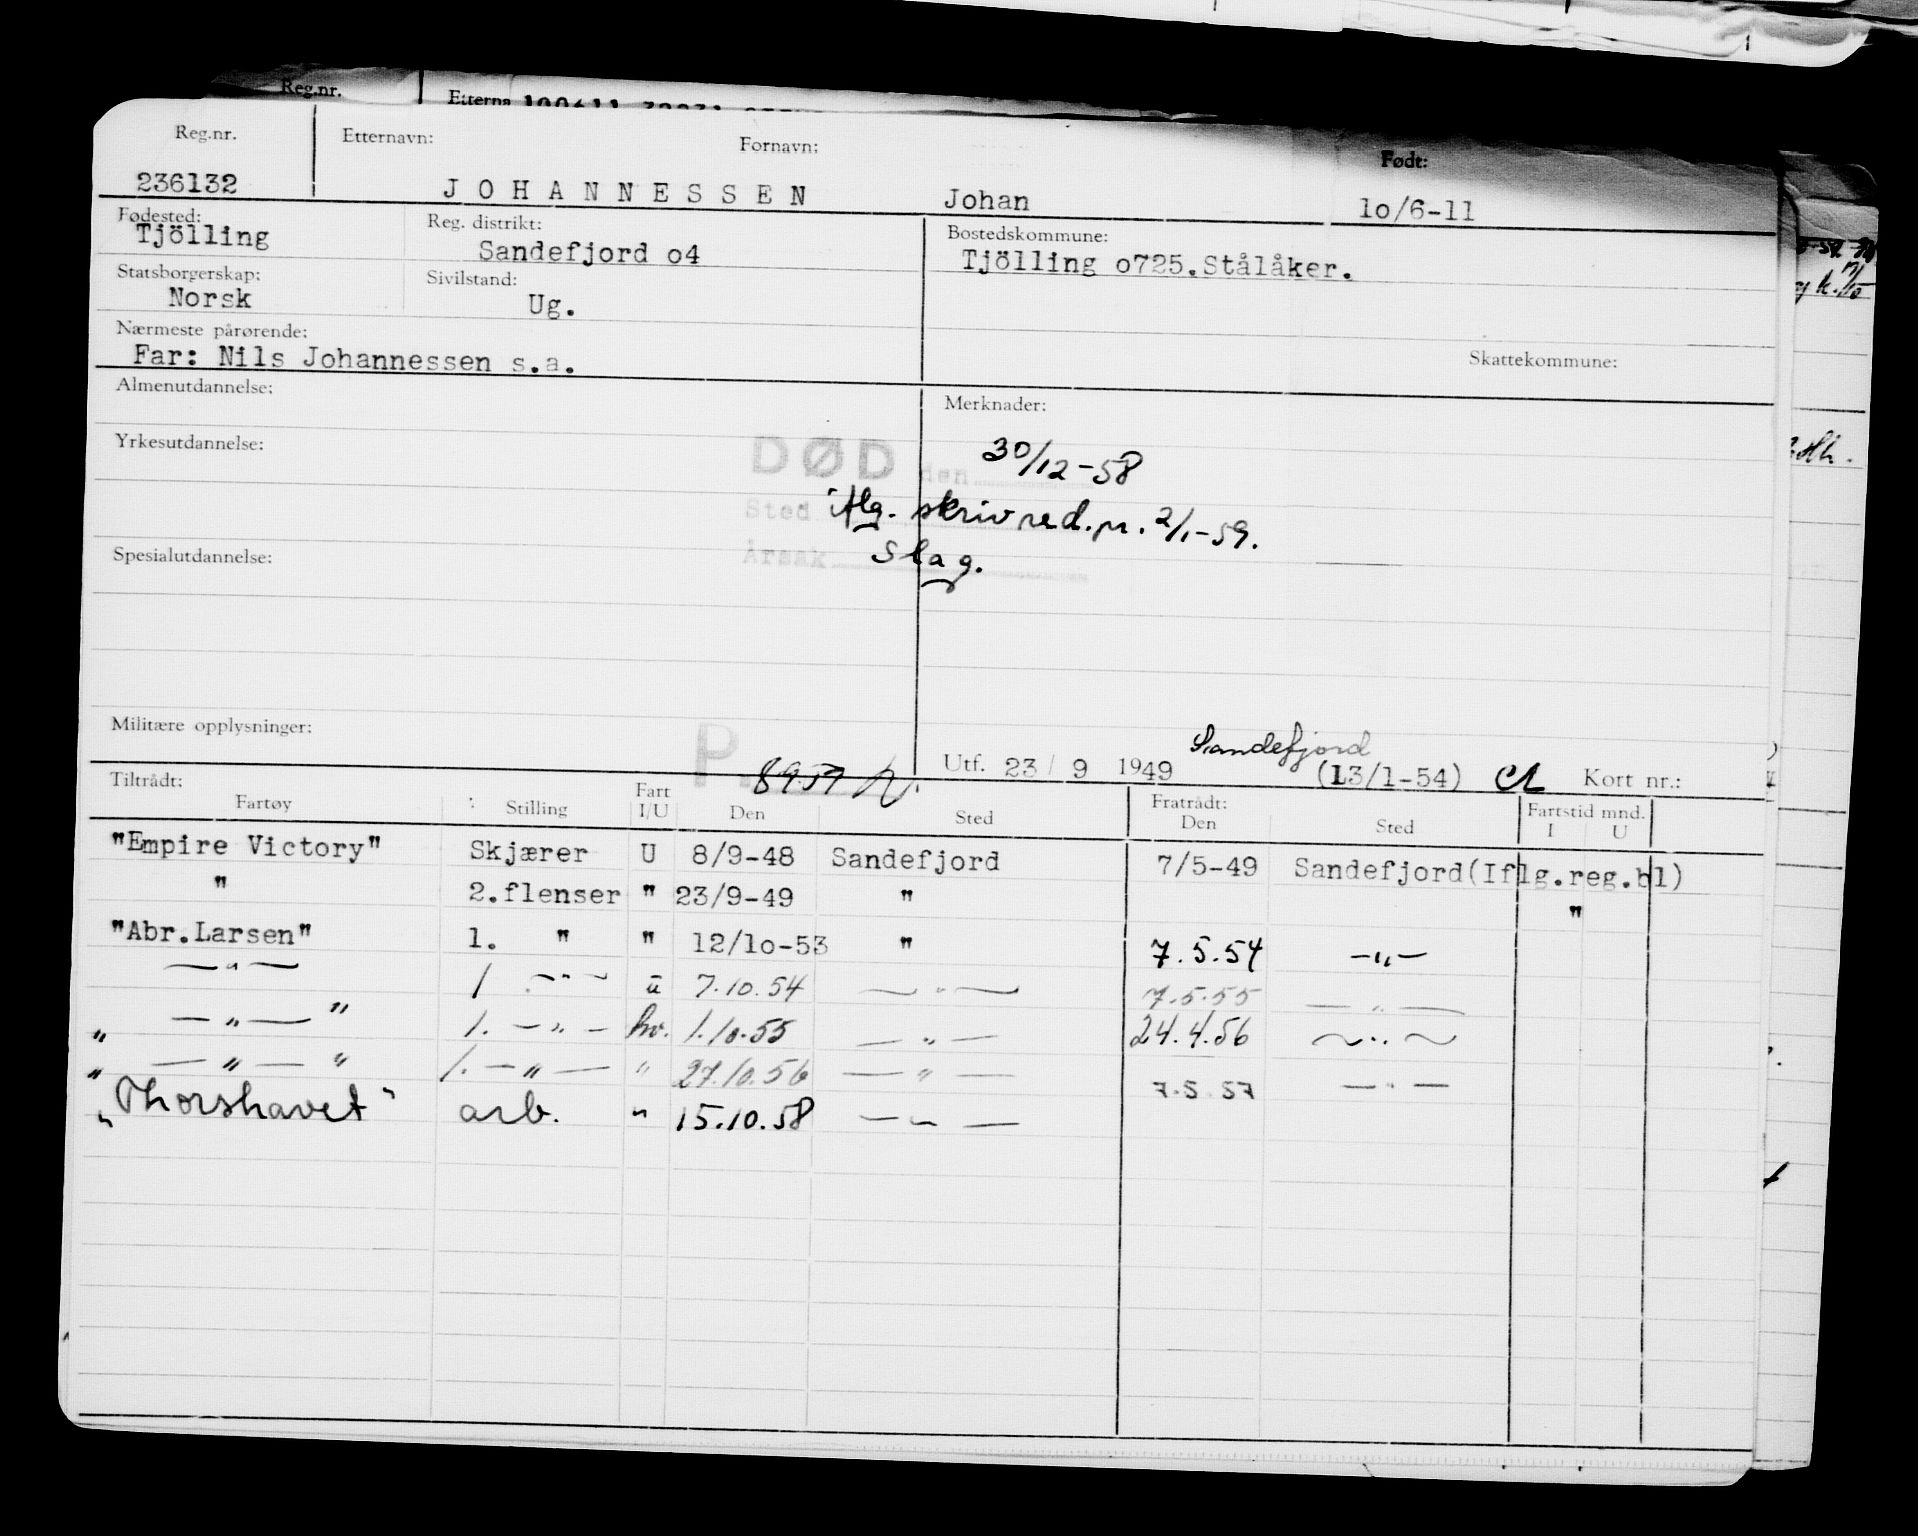 Reg.nr. Etterna
Reg.nr. Etternavn: Fornavn: Født:
236132 JOHANNESSEN Johan 1o/6-11
Fødested: Reg. distrikt: Bostedskommune:
Tjölling Sandefjord o4 Tjölling o725.Stålåker.
Statsborgerskap: Sivilstand:
Norsk Ug.
Nærmeste pårørende: Skattekommune:
Far: Nils Johannessen s.a.
Almenutdannelse: Merknader:
Yrkesutdannelse: DØD den 30/12-58
Sted iflg. skriv red. pr. 2/1-59.
Årsak Slag.
Spesialutdannelse:
Militære opplysninger: Sandefjord
P. 8957 Utf. 23/9 1949 (L3/1-54) Kort nr.:
Tiltrådt: Fratrådt: Fartstid mnd.
Fartøy Stilling Fart I/U Den Sted Den Sted I U
"Empire Victory" Skjærer U 8/9-48 Sandefjord 7/5-49 Sandefjord(Iflg.reg.bl)
" 2.flenser " 23/9-49 " "
"Abr.Larsen" 1. " " 12/1o-53 " 7.5.54 —"—
—"— 1 —"— u 7.10.54 —"— 7.5.55 —"—
" —"— " 1. —"— hv. 1.10.55 —"— 24.4.56 —"—
" —"— " 1. —"— " 27.10.56 —"— 7.5.57 —"—
"Thorshavet" arb. " 15.10.58 —"—